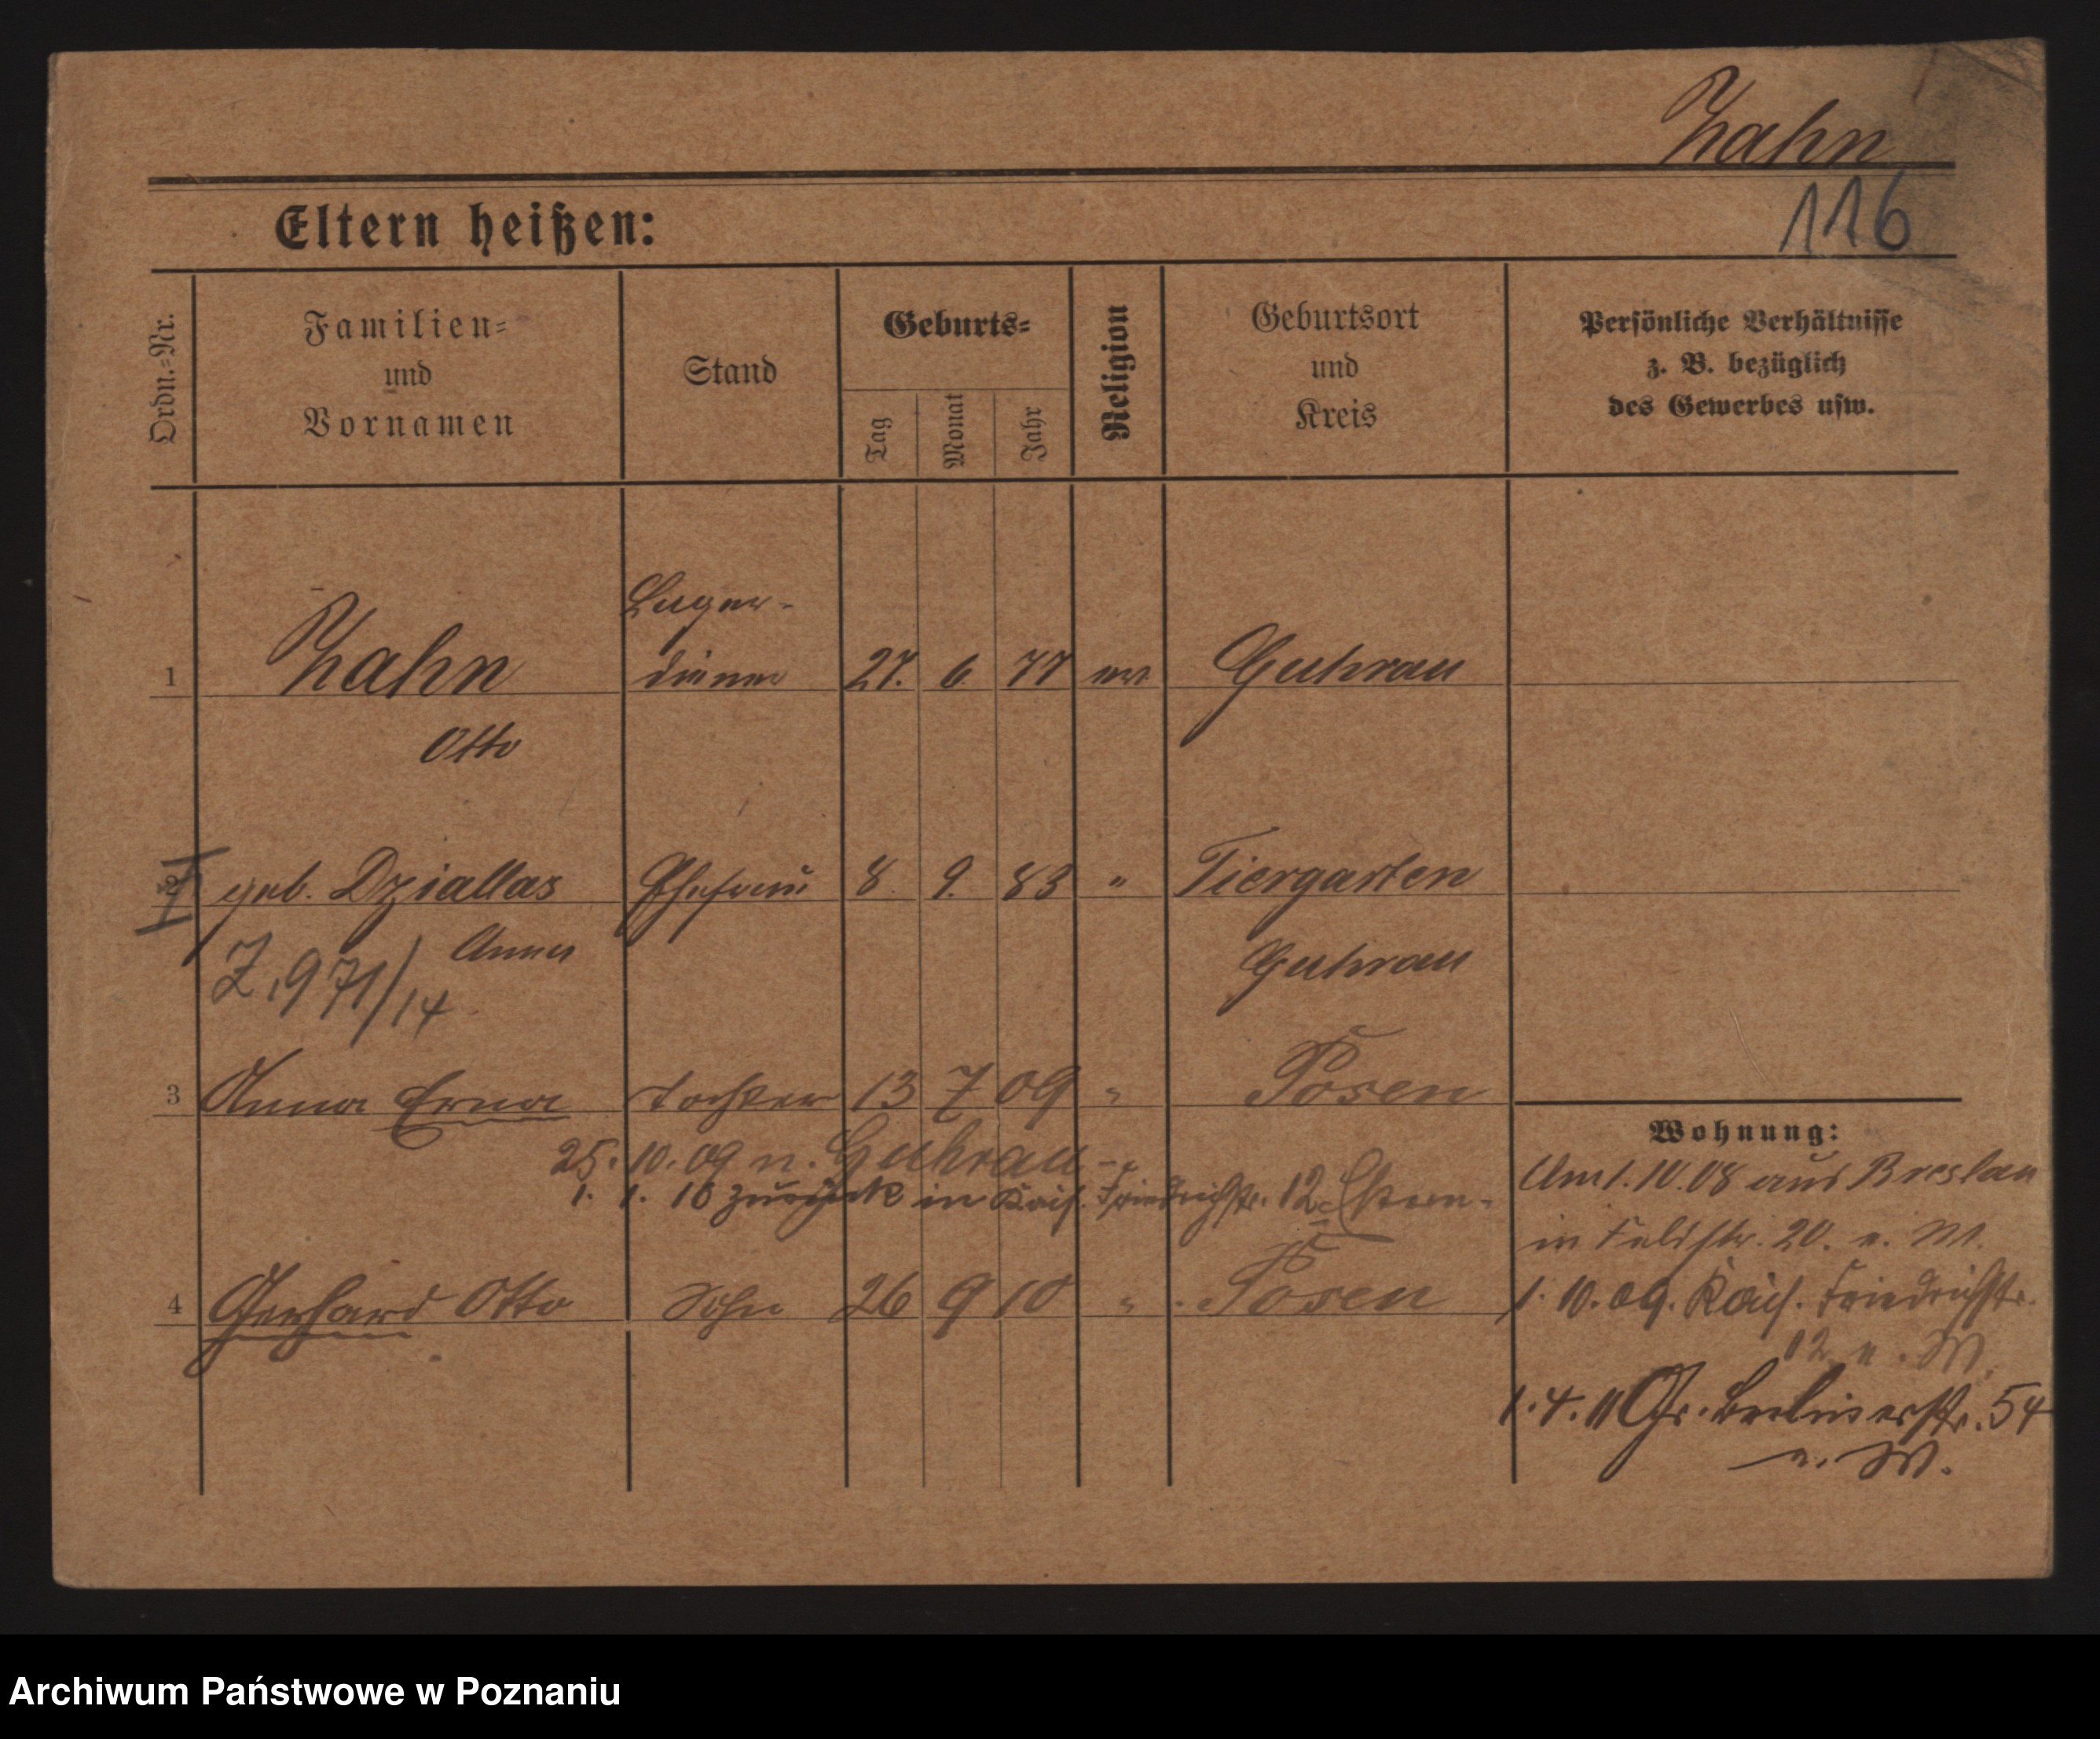 Zahn
116
Eltern heißen:
Ordn.=Nr.
Familien=
und
Vornamen
Stand
Geburts=
Tag
Monat
Jahr
Religion
Geburtsort
und
Kreis
Persönliche Verhältnisse
z. B. bezüglich
des Gewerbes usw.
Lager-
1 Zahn diener 27. 6. 77 ev Guhrau
Otto
2 geb. Dziallas Ehefrau 8. 9. 83 " Tiergarten
Anna Guhrau
Z. 971/14
3 Anna Erna Tochter 13 7 09 " Posen
25. 10. 09 n. Guhrau
1. 1. 10 zurück in Kais. Friedrichstr. 12 Eltern.
4 Gerhard Otto Sohn 26 9 10 " Posen
Wohnung:
Am 1. 10. 08 aus Breslau
in Feldstr. 20. e. W.
1. 10. 09. Kais. Friedrichstr.
12 e. W.
1. 4. 11 Gr. Berlinerstr. 54
e. W.
Archiwum Państwowe w Poznaniu